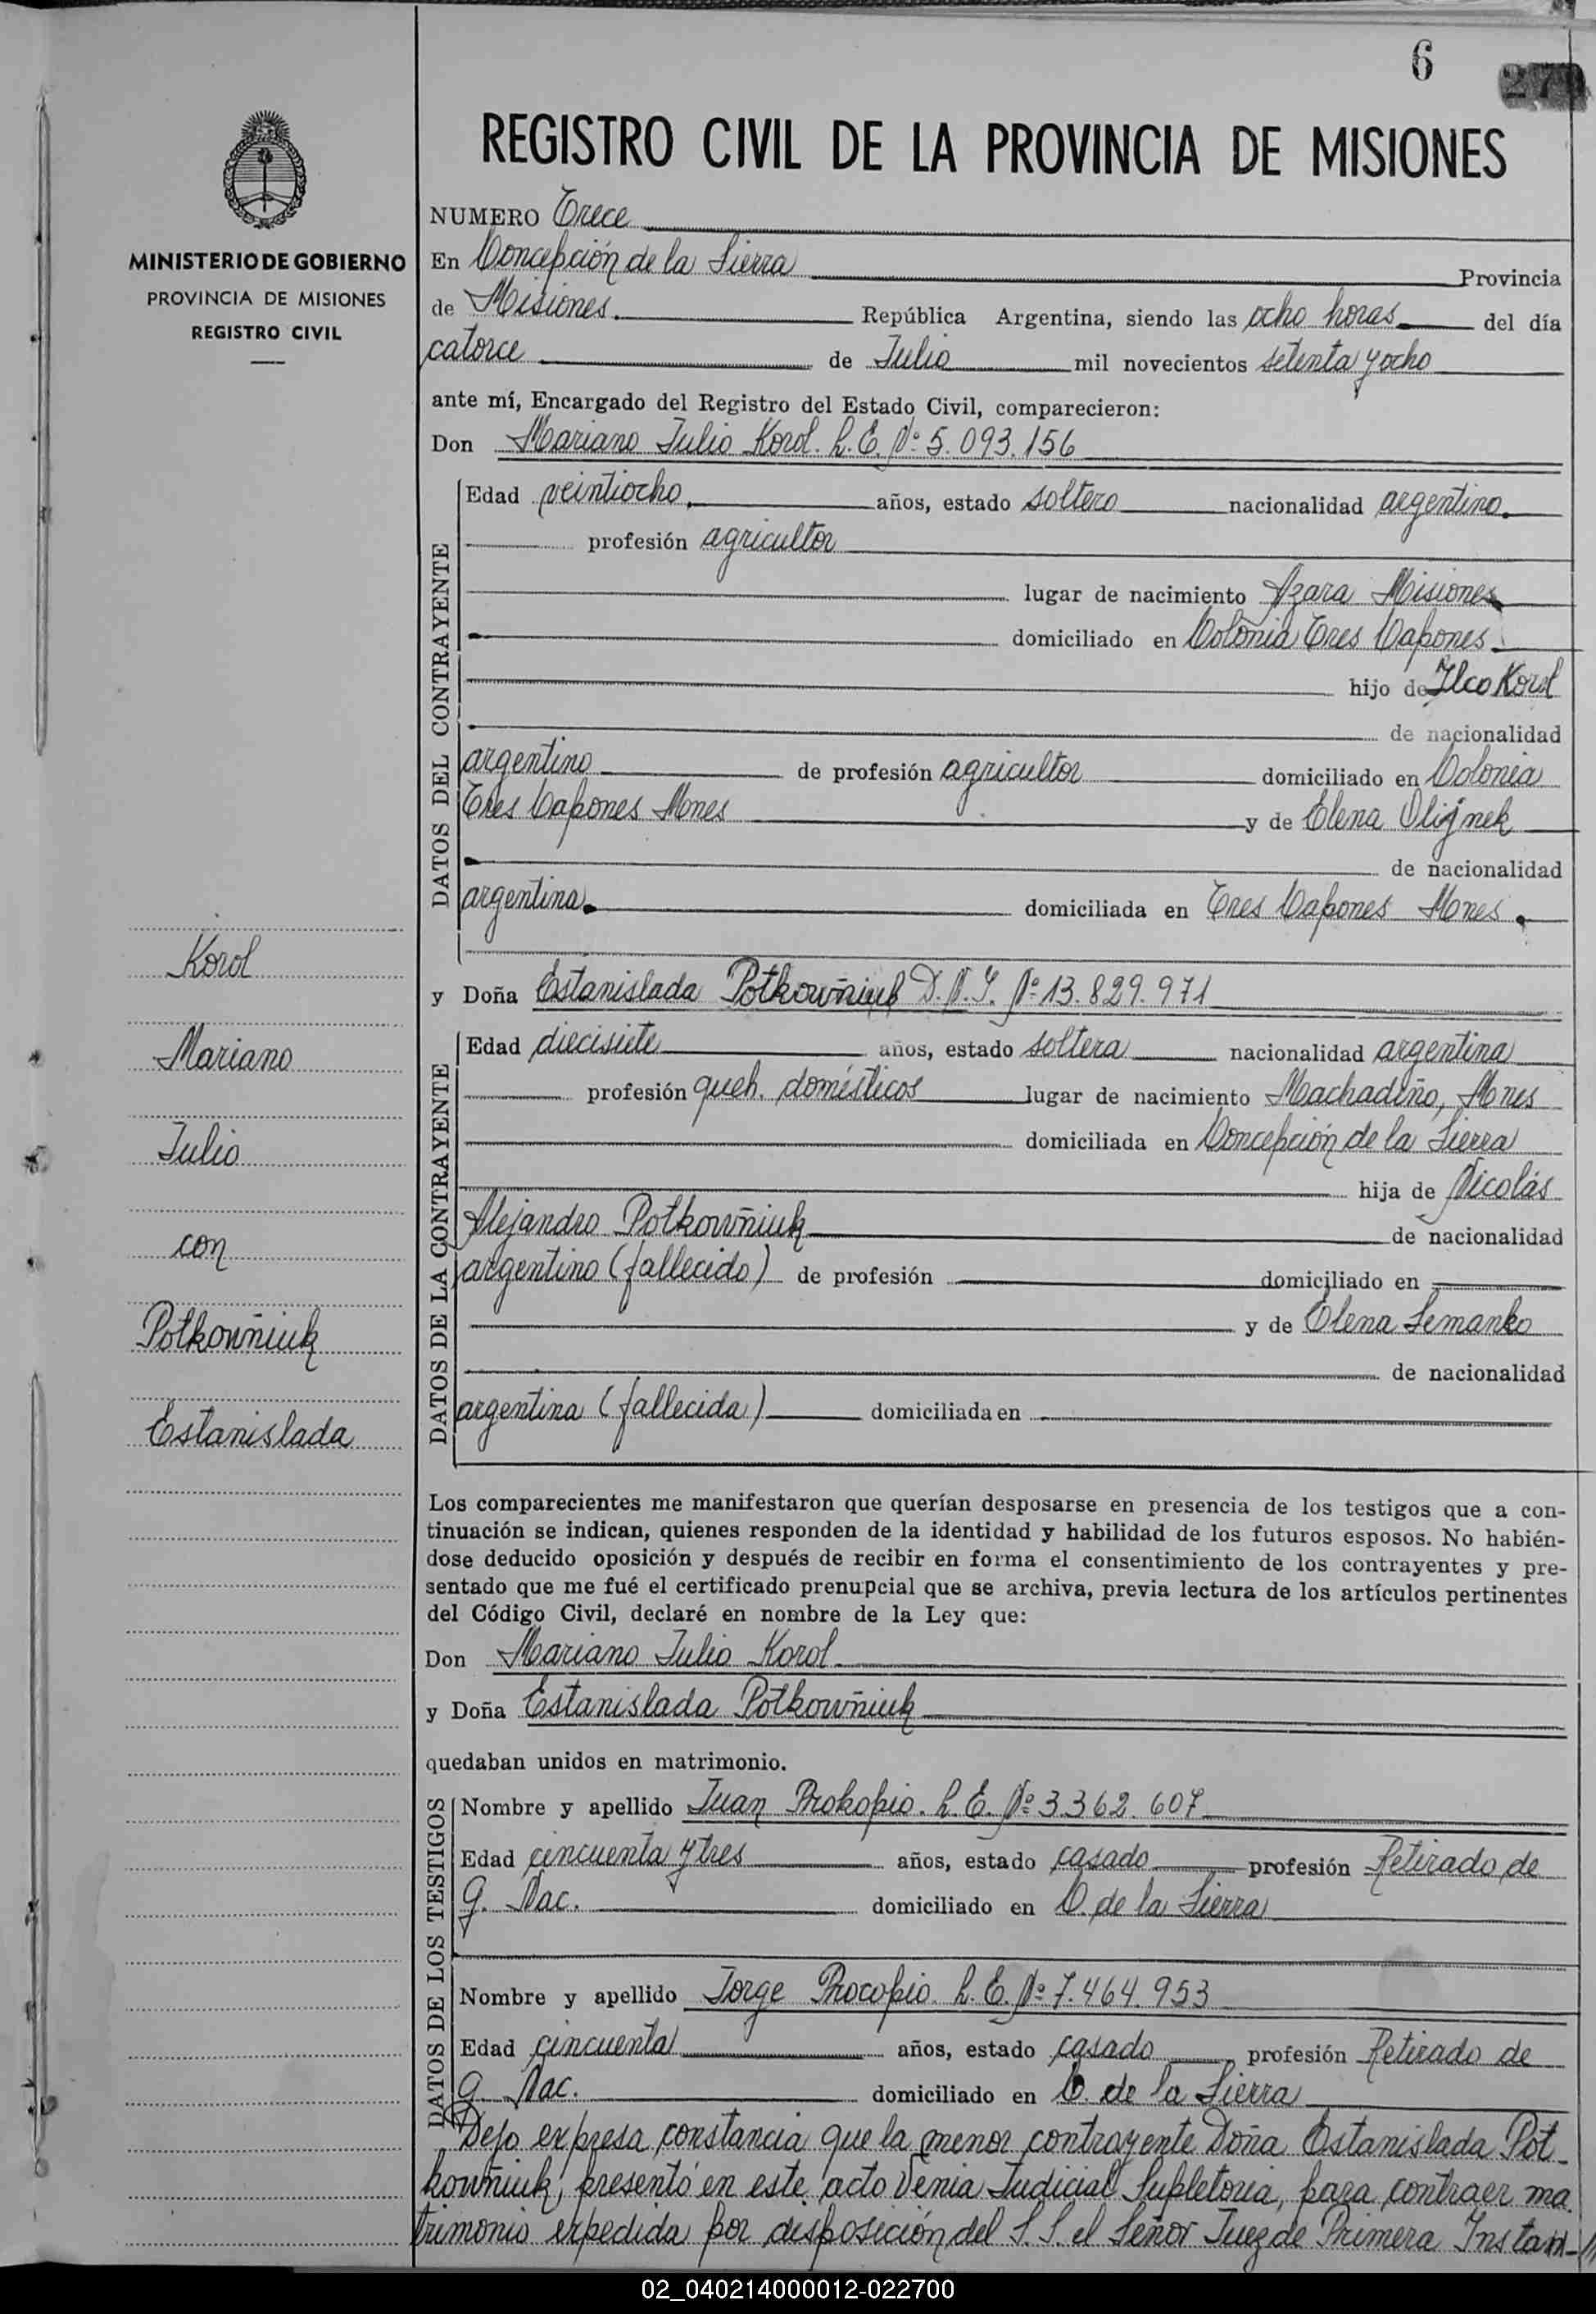 6
27
REGISTRO CIVIL DE LA PROVINCIA DE MISIONES
MINISTERIO DE GOBIERNO
PROVINCIA DE MISIONES
REGISTRO CIVIL
NUMERO Trece
En Concepción de la Sierra Provincia
de Misiones. República Argentina, siendo las ocho horas del día
catorce de Julio mil novecientos setenta y ocho
ante mí, Encargado del Registro del Estado Civil, comparecieron:
Don Mariano Julio Korol. L. E. Nº 5.093.156
DATOS DEL CONTRAYENTE
Edad veintiocho. años, estado soltero nacionalidad argentino.
profesión agricultor
lugar de nacimiento Azara Misiones
domiciliado en Colonia Tres Capones.
hijo de Ilco Korol
de nacionalidad
argentino de profesión agricultor domiciliado en Colonia
Tres Capones Mnes y de Elena Olijnek
de nacionalidad
argentina. domiciliada en Tres Capones Mnes.
y Doña Estanislada Potkowñiuk D.N.I. Nº 13.829.971
DATOS DE LA CONTRAYENTE
Edad diecisiete años, estado soltera nacionalidad argentina
profesión queh. domésticos lugar de nacimiento Machadiño, Mnes
domiciliada en Concepción de la Sierra
hija de Nicolás
Alejandro Potkowñiuk de nacionalidad
argentino (fallecido) de profesión domiciliado en
y de Elena Semanko
de nacionalidad
argentina (fallecida) domiciliada en
Korol
Mariano
Julio
con
Potkowñiuk
Estanislada
Los comparecientes me manifestaron que querían desposarse en presencia de los testigos que a con-
tinuación se indican, quienes responden de la identidad y habilidad de los futuros esposos. No habién-
dose deducido oposición y después de recibir en forma el consentimiento de los contrayentes y pre-
sentado que me fué el certificado prenupcial que se archiva, previa lectura de los artículos pertinentes
del Código Civil, declaré en nombre de la Ley que:
Don Mariano Julio Korol
y Doña Estanislada Potkowñiuk
quedaban unidos en matrimonio.
DATOS DE LOS TESTIGOS
Nombre y apellido Juan Prokopio. L. E. Nº 3.362.607
Edad cincuenta y tres años, estado casado profesión Retirado de
G. Nac. domiciliado en C. de la Sierra
Nombre y apellido Jorge Procopio. L. E. Nº 7.464.953
Edad cincuenta años, estado casado profesión Retirado de
G. Nac. domiciliado en C. de la Sierra
Dejo expresa constancia que la menor contrayente Doña Estanislada Pot-
kowñiuk, presentó en este acto Venia Judicial Supletoria, para contraer ma
trimonio expedida por disposición del S. S. el Señor Juez de Primera Instan-
02_040214000012-022700